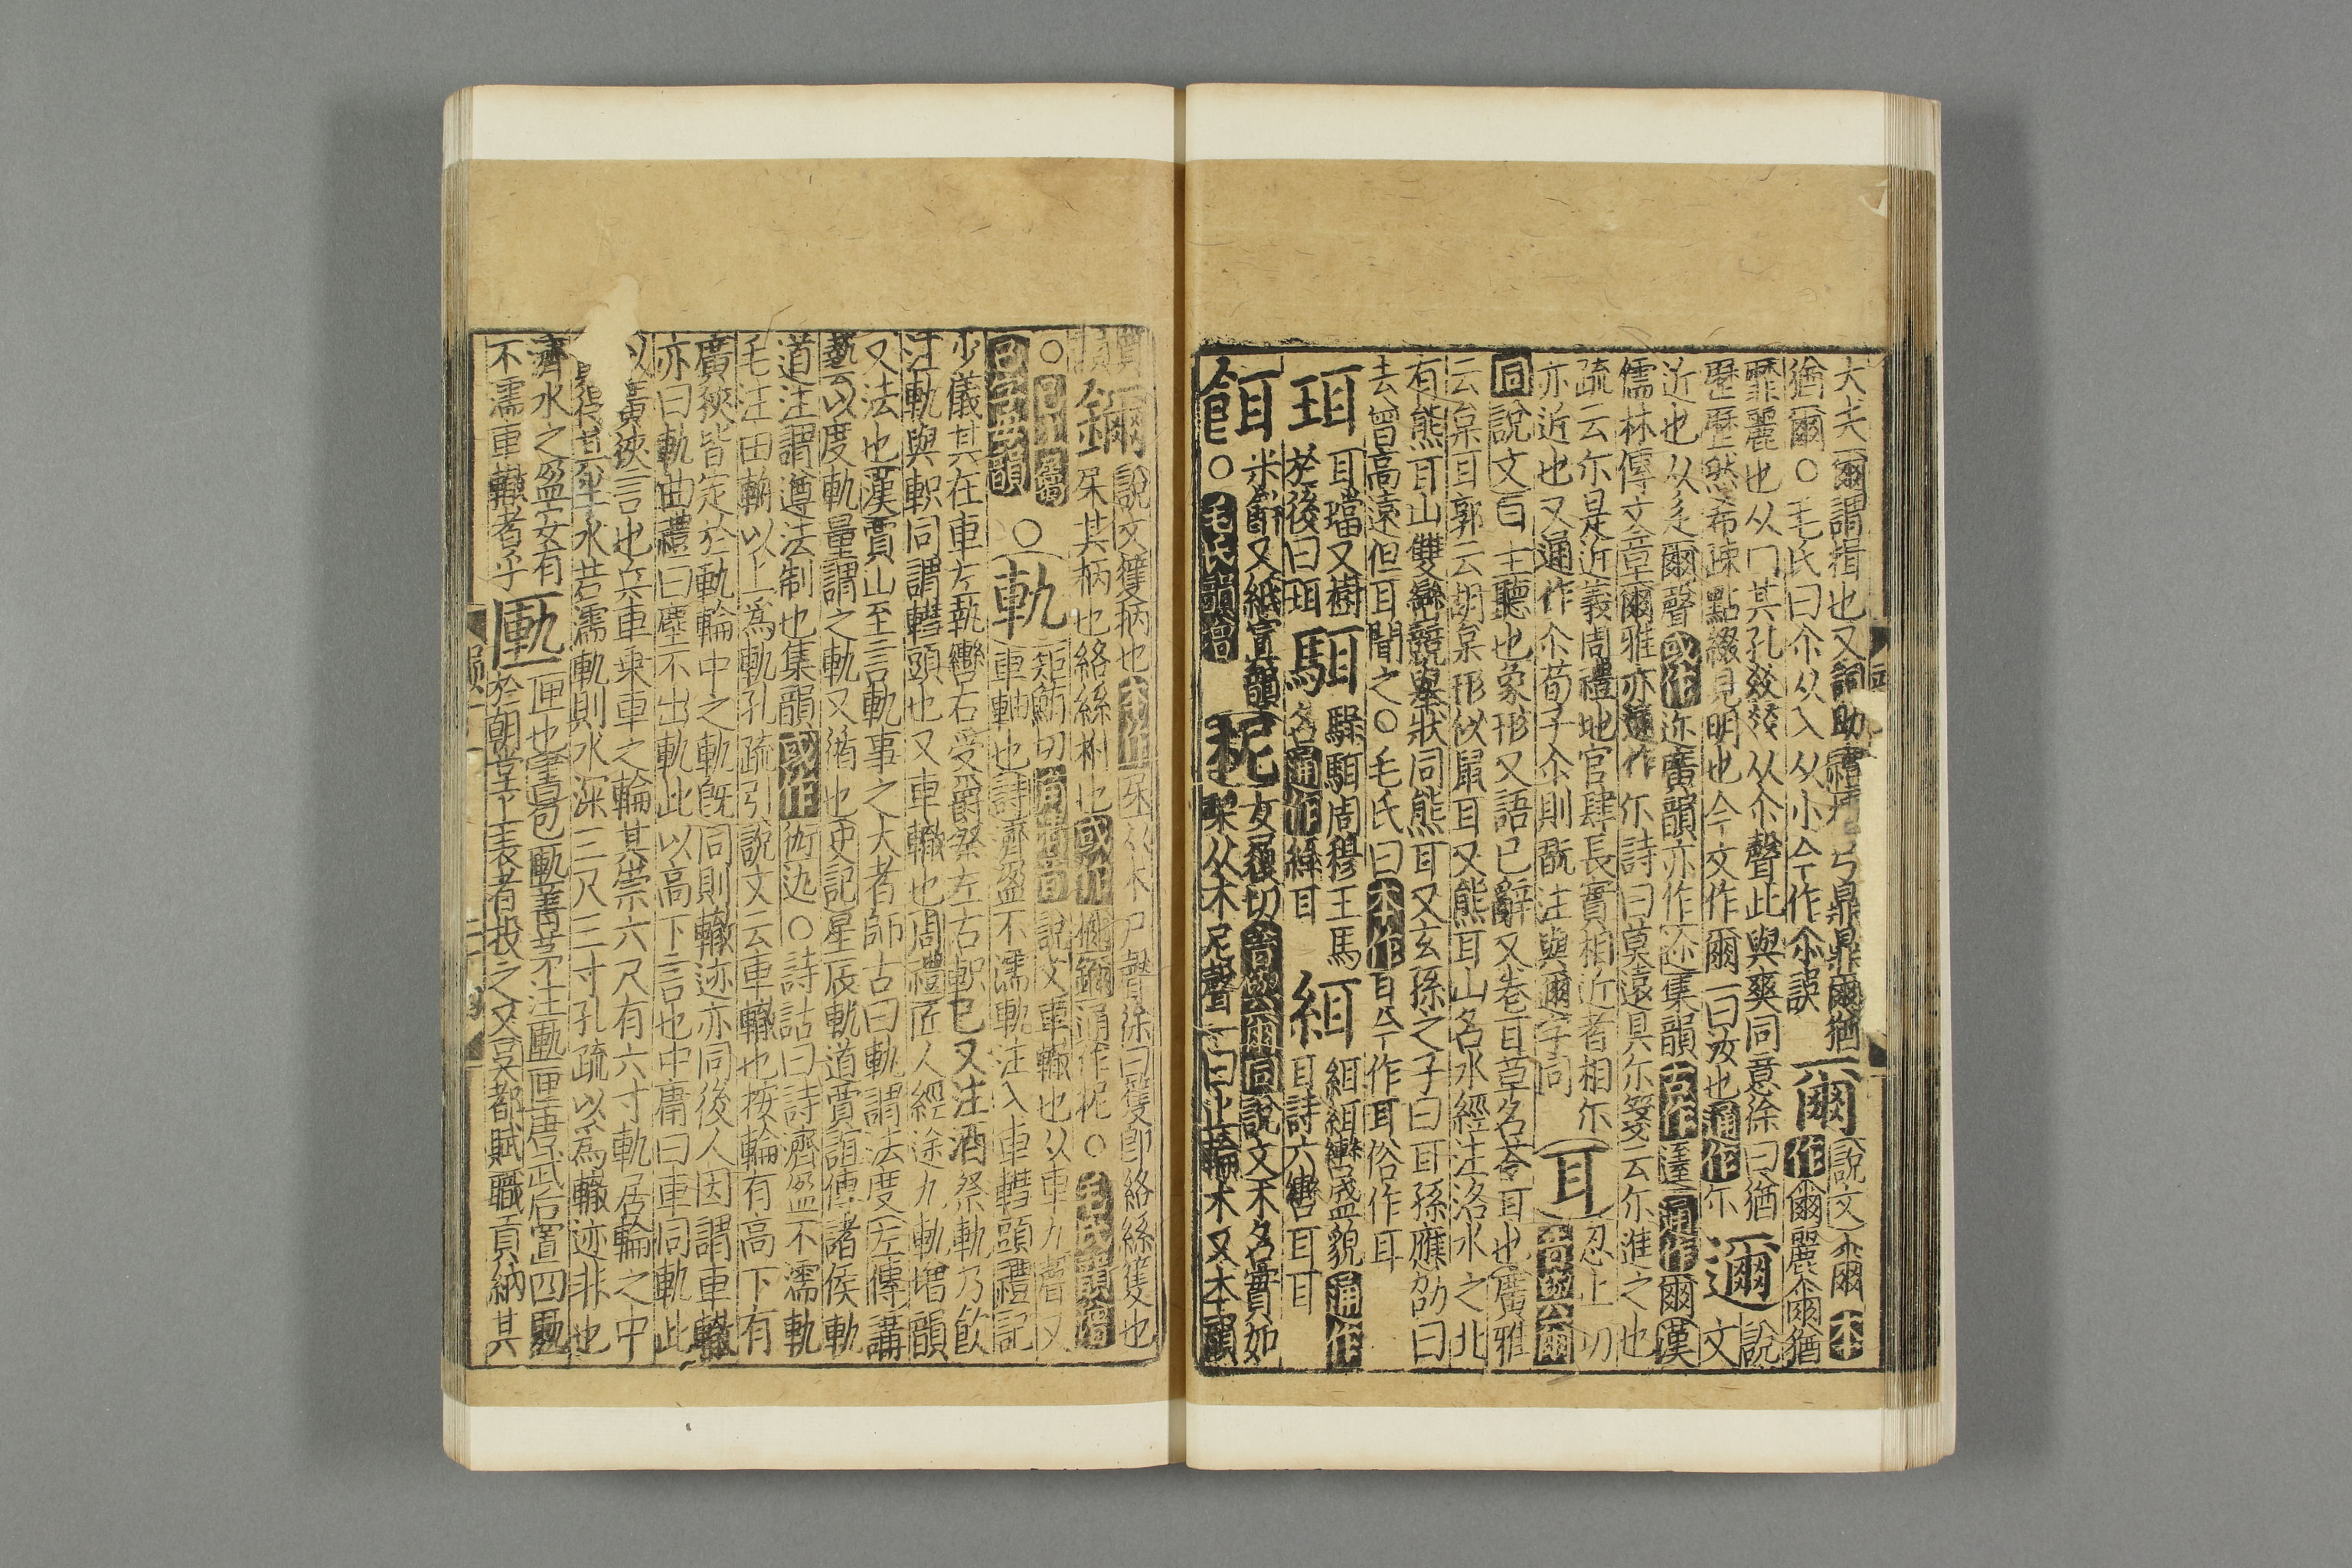 大夫爾謂揖也又詞助弓鼎鼎爾猶
猶爾○毛氏曰尒从入从小今作尒誤
爾說文尒爾本
作爾麗尒爾猶
靡麗也从冂其孔㸚㸚从尒聲此與爽同意徐曰猶
歷歷然希疎點綴見明也今文作爾一曰汝也通作尓邇說文
近也从辵爾聲或作迩廣韻亦作迩集韻古作通作爾漢
儒林傳文章爾雅亦通作尓詩曰莫遠具尓箋云尓進之也
疏云尓是近義周禮地官肆長實相近者相尓
亦近也又通作尒荀子尒則翫注與爾字同
耳忍止切
音與爾
同說文曰主聽也象形又語已辭又巷耳草名苓耳也廣雅
云枲耳郭云胡枲形似鼠耳又熊耳山名水經注洛水之北
有熊耳山雙巒競舉狀同熊耳又玄孫之子曰耳孫應劭曰
去曾高遠但耳聞之○毛氏曰本作今作耳俗作耳
珥耳璫又樹
於後曰珥
駬騄駬周穆王馬
名通作綠耳
緷
耳詩六轡耳耳
餌米餅又紙寘韻
○毛氏韻增
柅女履切音與爾同說文木名實如
棃从木尼聲一曰止輪木又本韻
鑈說文籆柄也本作㞾从木尸聲徐曰籆卽絡絲籆也
㞾其柄也絡絲柎也或作檷鑈通作柅○毛氏韻增
○軌矩鮪切說文車轍也以車九聲又
車軸也詩濟盈不濡軌注入車轊頭禮記
少儀其在車左執轡右受爵祭左右軌已又注酒祭軌乃飮
注軌與軹同謂轊頭也又車轍也周禮匠人經途九軌增韻
又法也漢賈山至言軌事之大者師古曰軌謂法度左傳講
藝以度軌量謂之軌又循也史記星辰軌道賈誼傳諸侯軌
道注謂遵法制也集韻或作○詩詁曰詩濟盈不濡軌
毛注由輈以上爲軌孔疏引說文云車轍也按輪有高下有
廣狹皆定於軌輪中之軌旣同則轍迹亦同後人因謂車轍
亦曰軌曲禮曰塵不出軌此以高下言也中庸曰車同軌此
以廣狹言也兵車乗車之輪其崇六尺有六寸軌居輪之中
水若濡軌則水深三尺三寸孔疏以爲轍迹非也
濟水之盈安有
不濡車轍者乎
匭匣也書包匭菁茅注匭匣唐武后置四匭
於朝堂上表者投之又吳都賦職貢納其